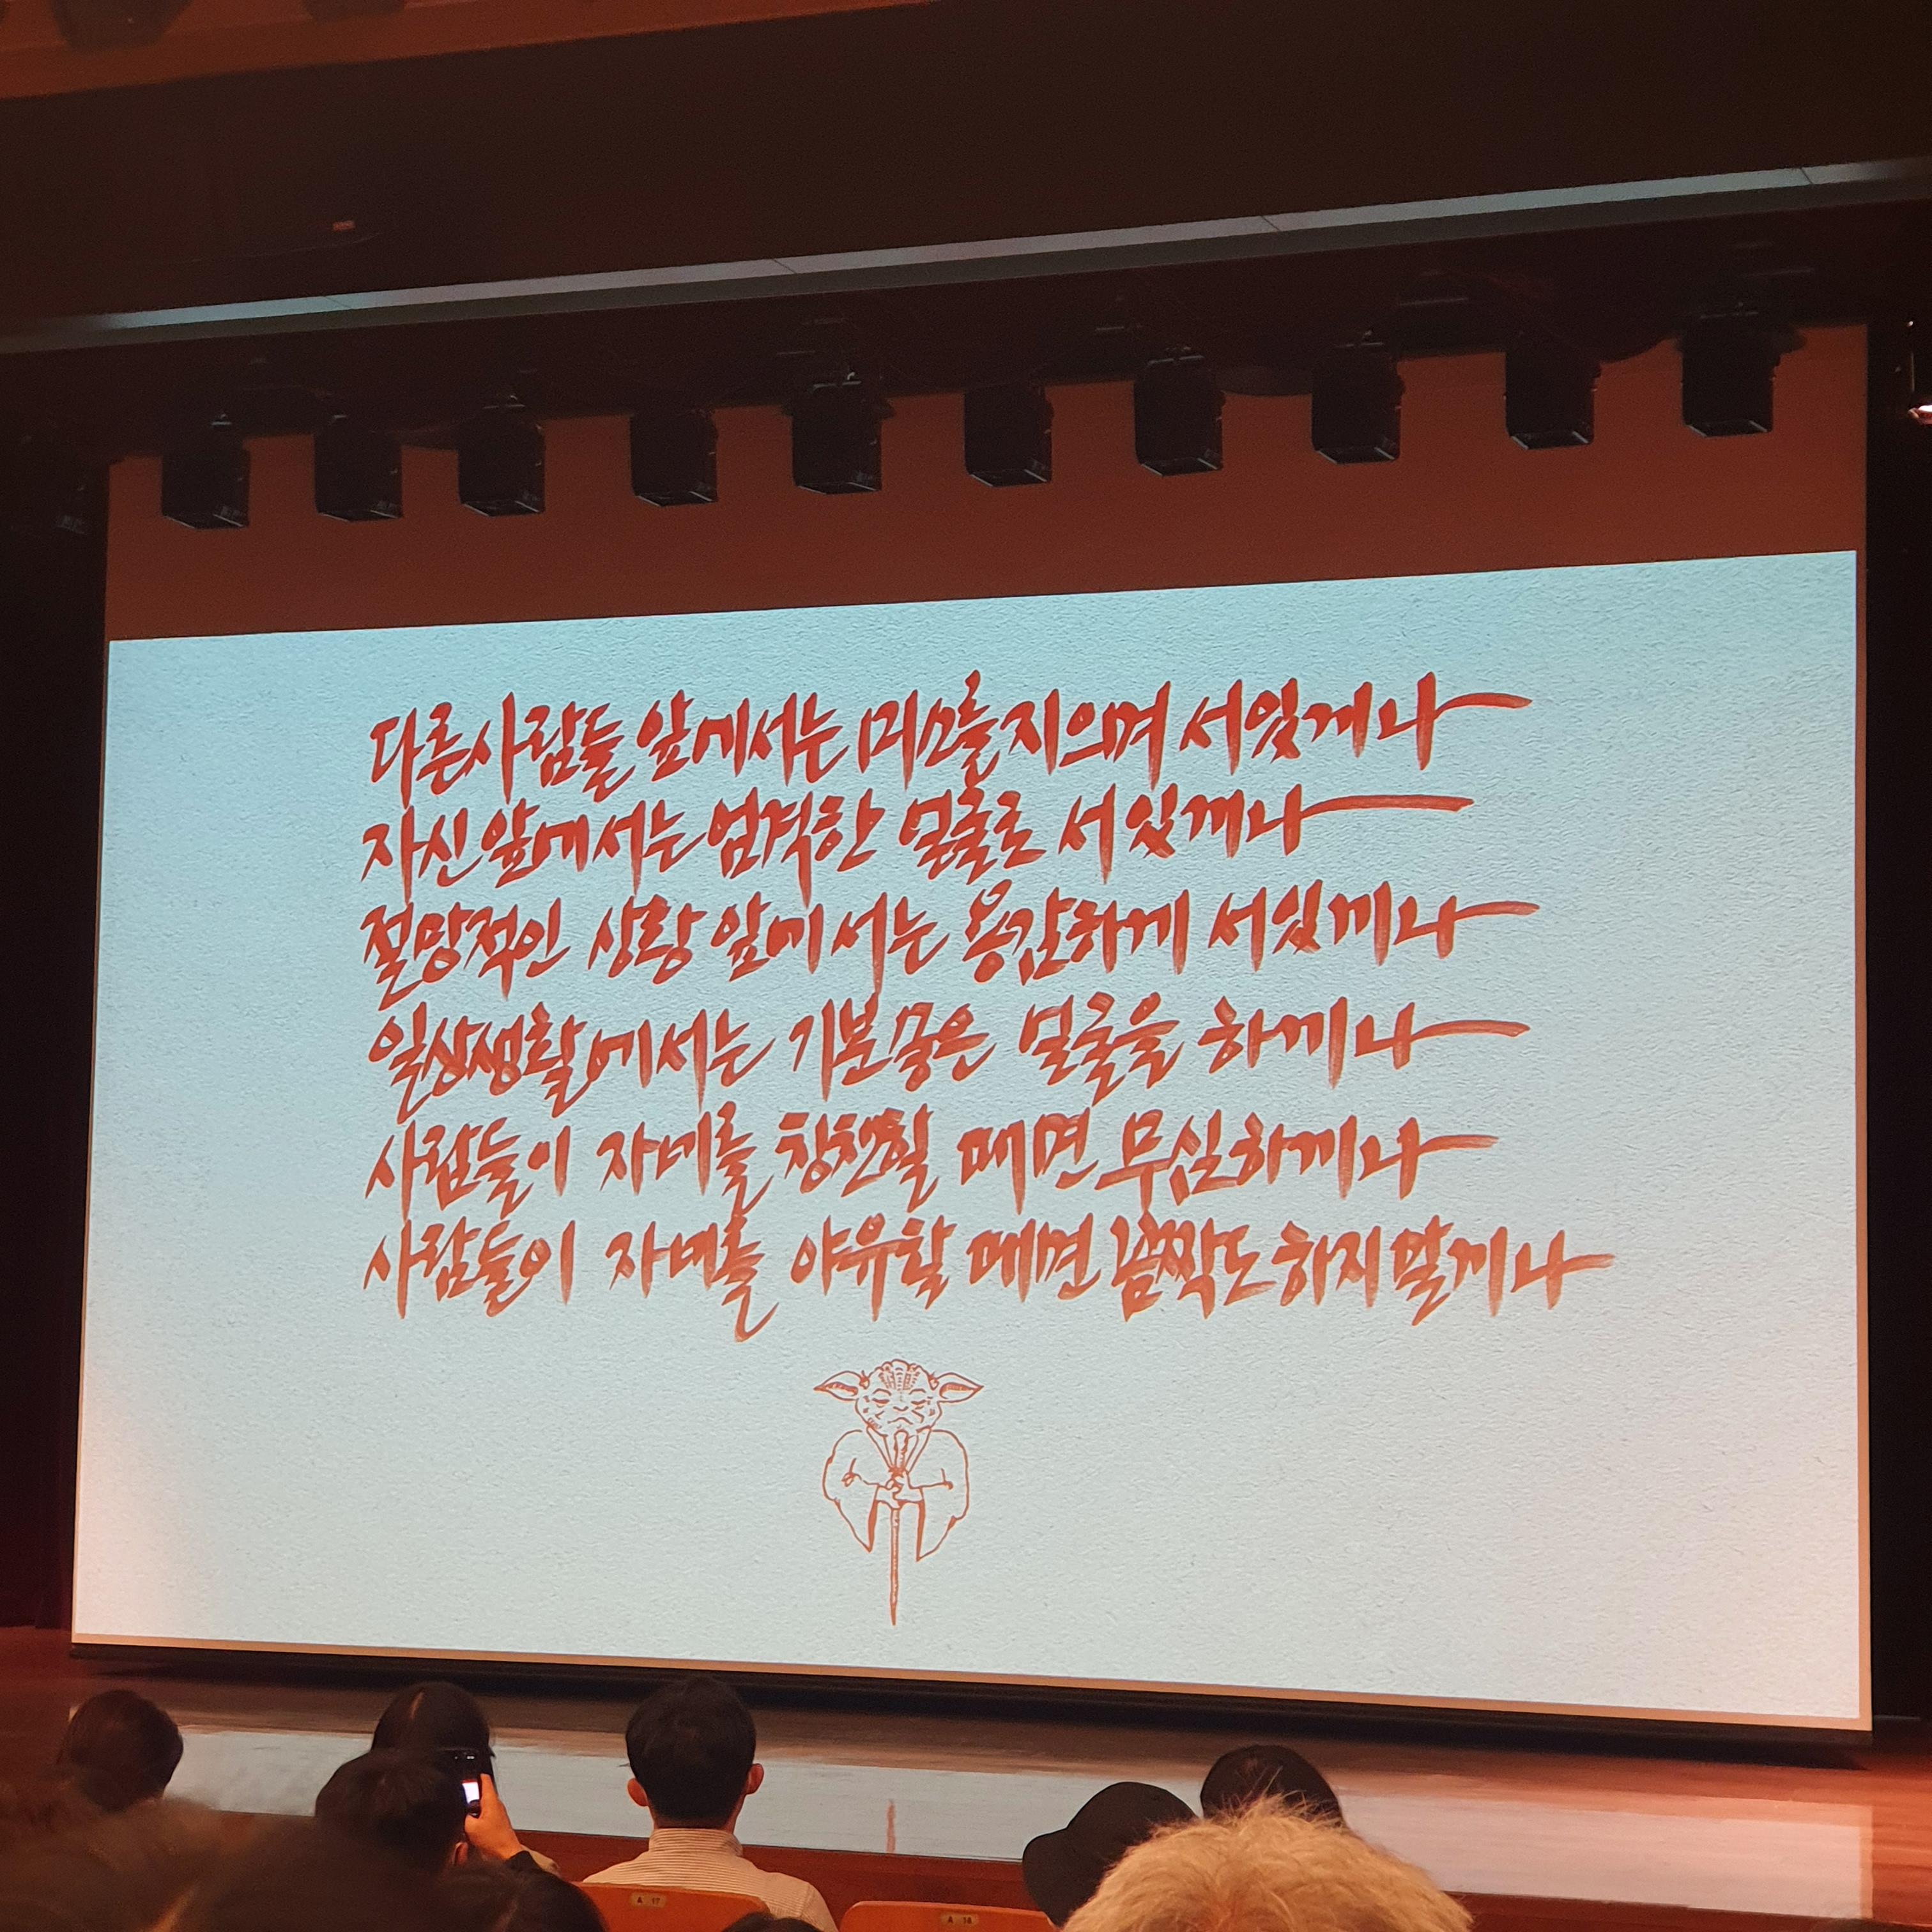 다른사람들 앞에서는 미소를 지으며 서있게나
자신 앞에서는 엄격한 얼굴로 서있게나
절망적인 상황 앞에서는 용감하게 서있게나
일상생활에서는 기분좋은 얼굴을 하게나
사람들이 자네를 칭찬할 때면 무심하게나
사람들이 자네를 야유할 때면 꼼짝도 하지 말게나
A 17
A 18